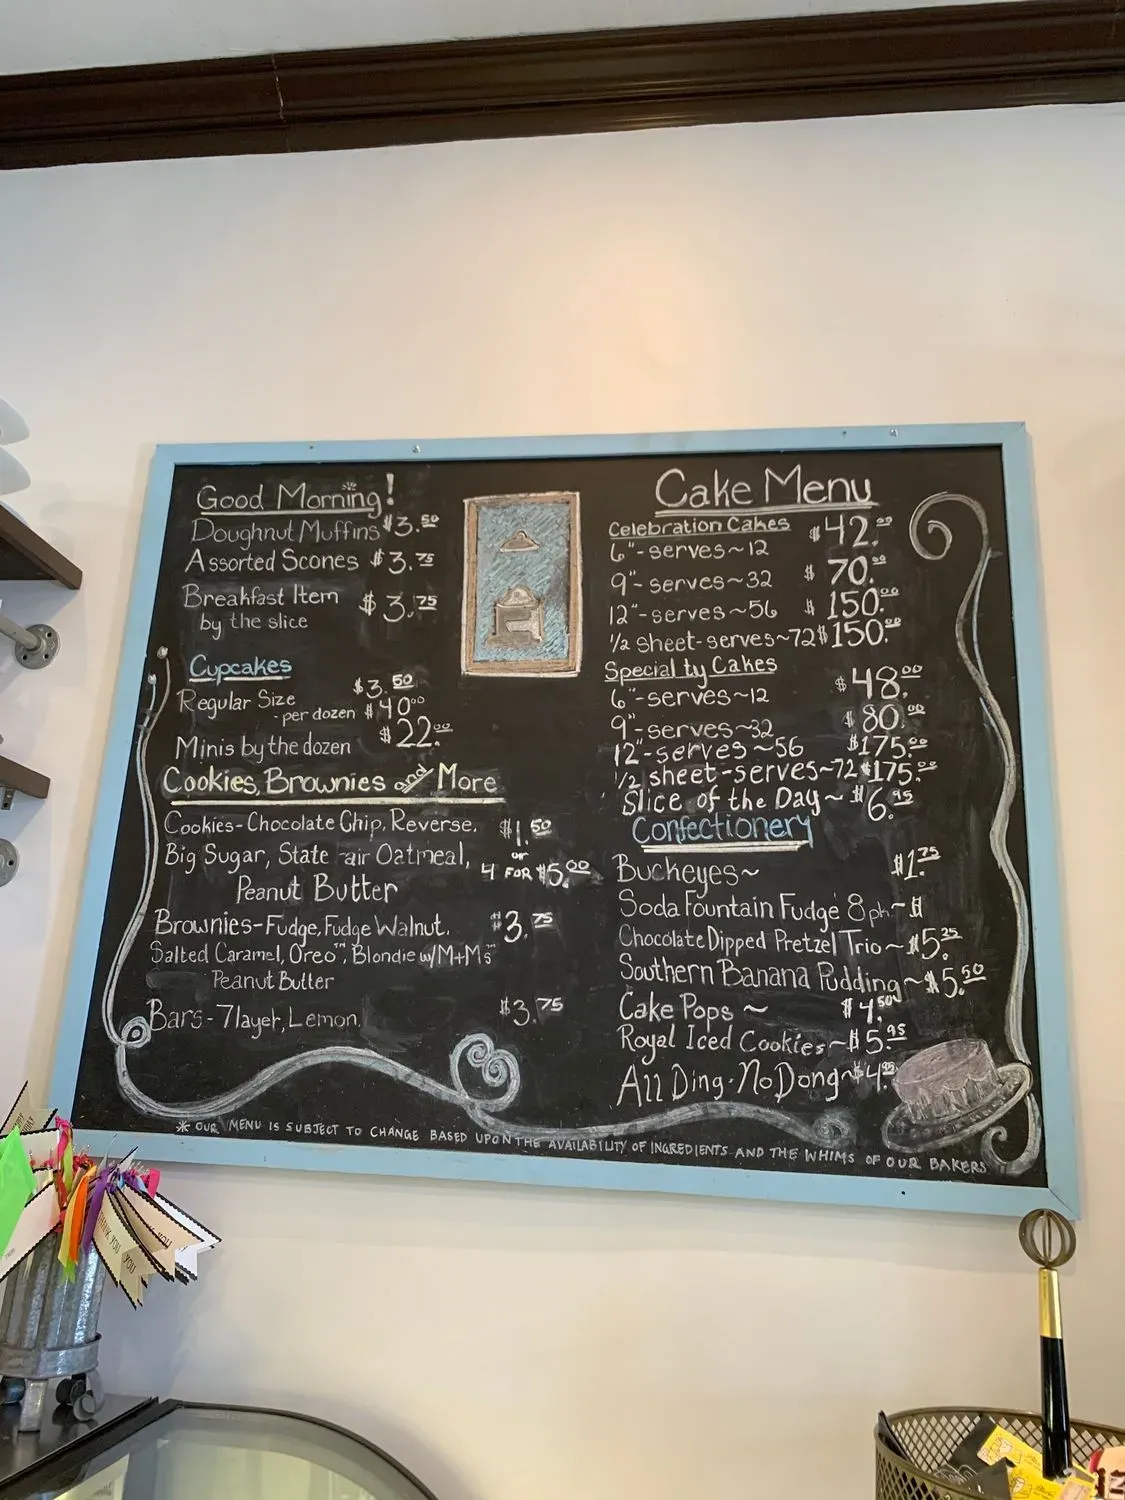 Good Morning!
Doughnut Muffins $3.50
Assorted Scones $3.75
Breakfast Item $3.75
by the slice
Cupcakes
Regular Size $3.50
-per dozen $40.00
Minis by the dozen $22.00
Cookies, Brownies and More
Cookies-Chocolate Chip, Reverse, $1.50
Big Sugar, State air Oatmeal, or 4 FOR $5.00
Peanut Butter
Brownies-Fudge, Fudge Walnut, $3.75
Salted Caramel, Oreo™, Blondie w/M+M's
Peanut Butter
Bars-7 layer, Lemon, $3.75
Cake Menu
Celebration Cakes
6"-serves~12 $42.00
9"-serves~32 $70.00
12"-serves~56 $150.00
1/2 sheet-serves~72 $150.00
Specialty Cakes
6"-serves~12 $48.00
9"-serves~32 $80.00
12"-serves~56 $175.00
1/2 sheet-serves~72 $175.00
Slice of the Day~ $6.95
Confectionery
Buckeyes~ $1.75
Soda Fountain Fudge 8 ph~$
Chocolate Dipped Pretzel Trio~$5.25
Southern Banana Pudding~$5.50
Cake Pops~ $4.50
Royal Iced Cookies~$5.95
All Ding-No Dong~$4.95
* OUR MENU IS SUBJECT TO CHANGE BASED UPON THE AVAILABILITY OF INGREDIENTS AND THE WHIMS OF OUR BAKERS
THANK YOU
YOU
YOU